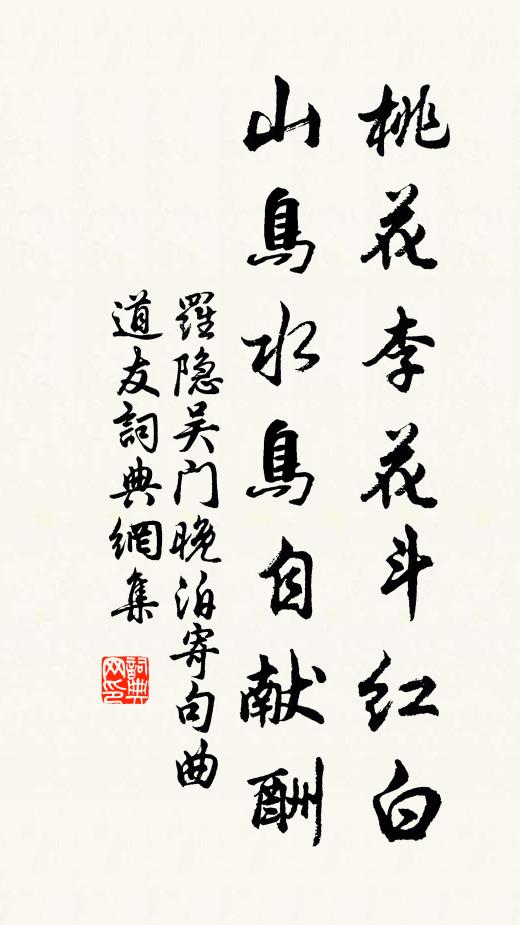 桃花李花斗红白
山鳥水鳥自献酬
羅隐吴门晚泊寄句曲
道友詞典網集
詞典网印